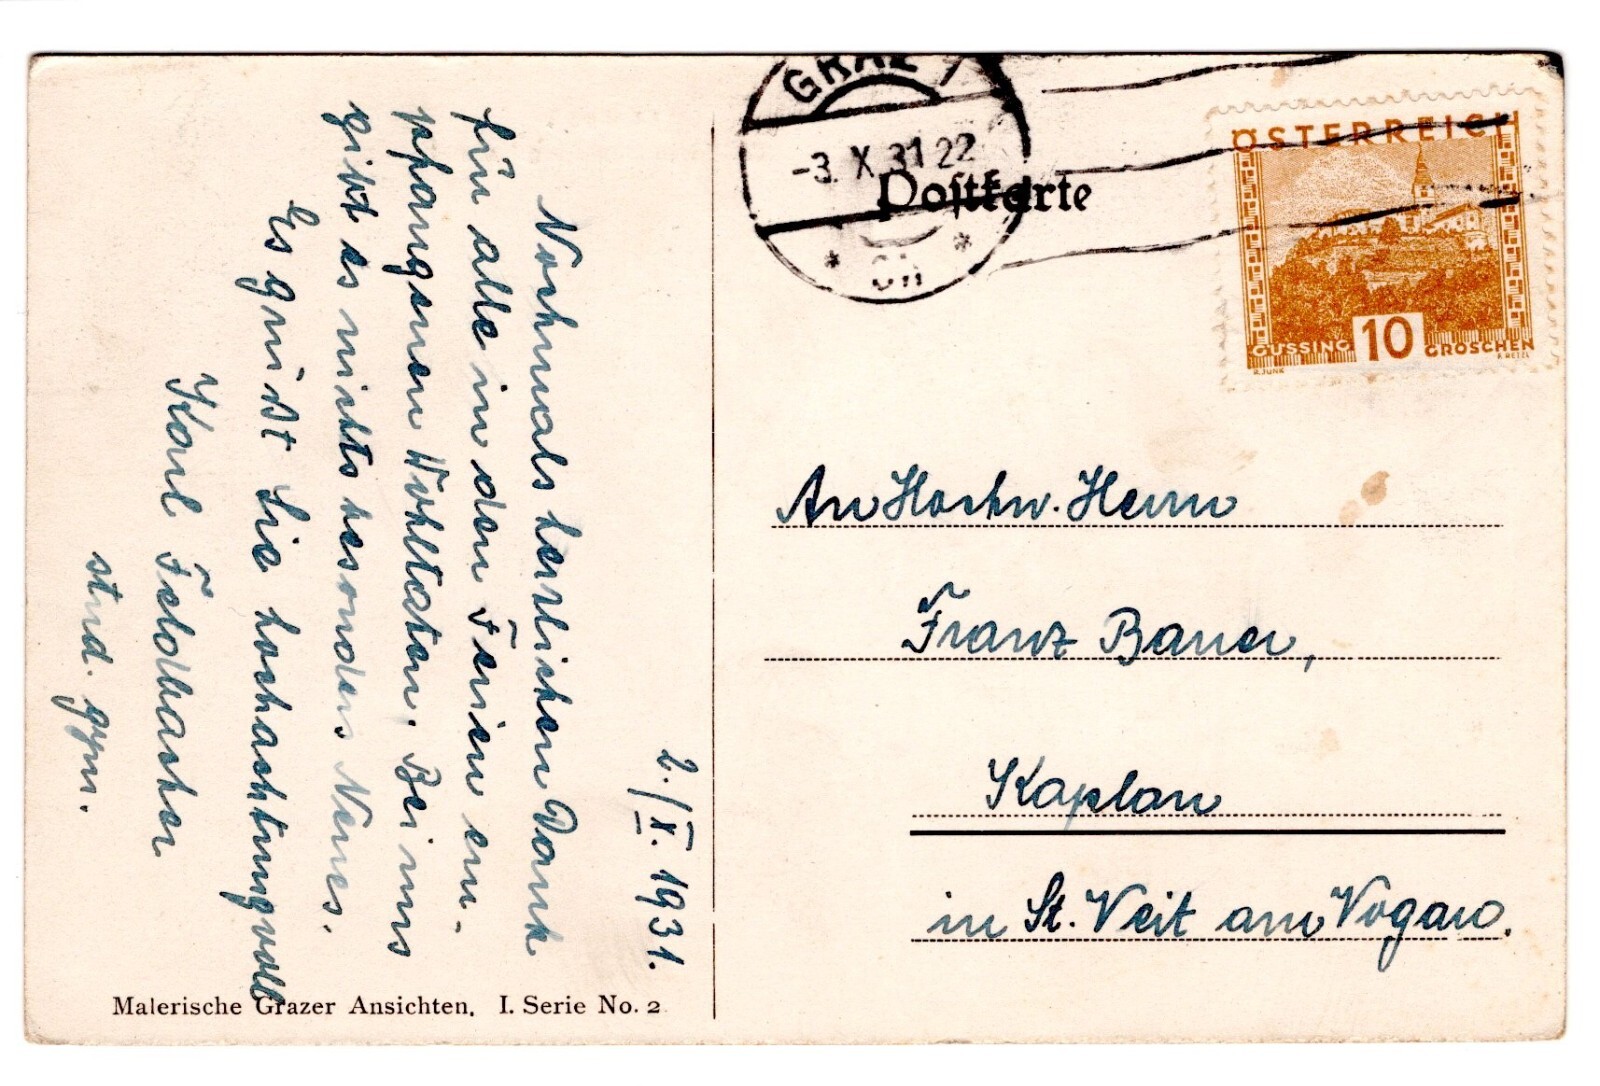 2./X. 1931.
Nochmals herzlichen Dank
für alle in den Ferien em-
pfangenen Wohltaten. Bei uns
gibt es nichts besonders Neues.
Es grüßt Sie hochachtungsvoll
Karl Feldbacher
stud. gym.
Malerische Grazer Ansichten, I. Serie No. 2
GRAZ 1
-3. X. 31 22
* *
Postkarte
ÖSTERREICH
GÜSSING 10 GROSCHEN
R. JUNK
An Hochw. Herrn
Franz Bauer,
Kaplan
in St. Veit am Vogau.